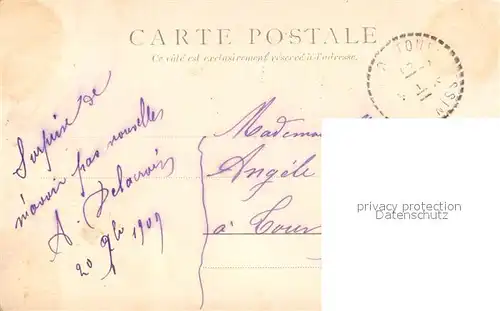 CARTE POSTALE
Ce côté est exclusivement réservé à l'adresse.
Surprise de
n'avoir pas nouvelles
A. Delacroix
20 9bre 1909
Mademoi
Angèle
à Tour
privacy protection
Datenschutz